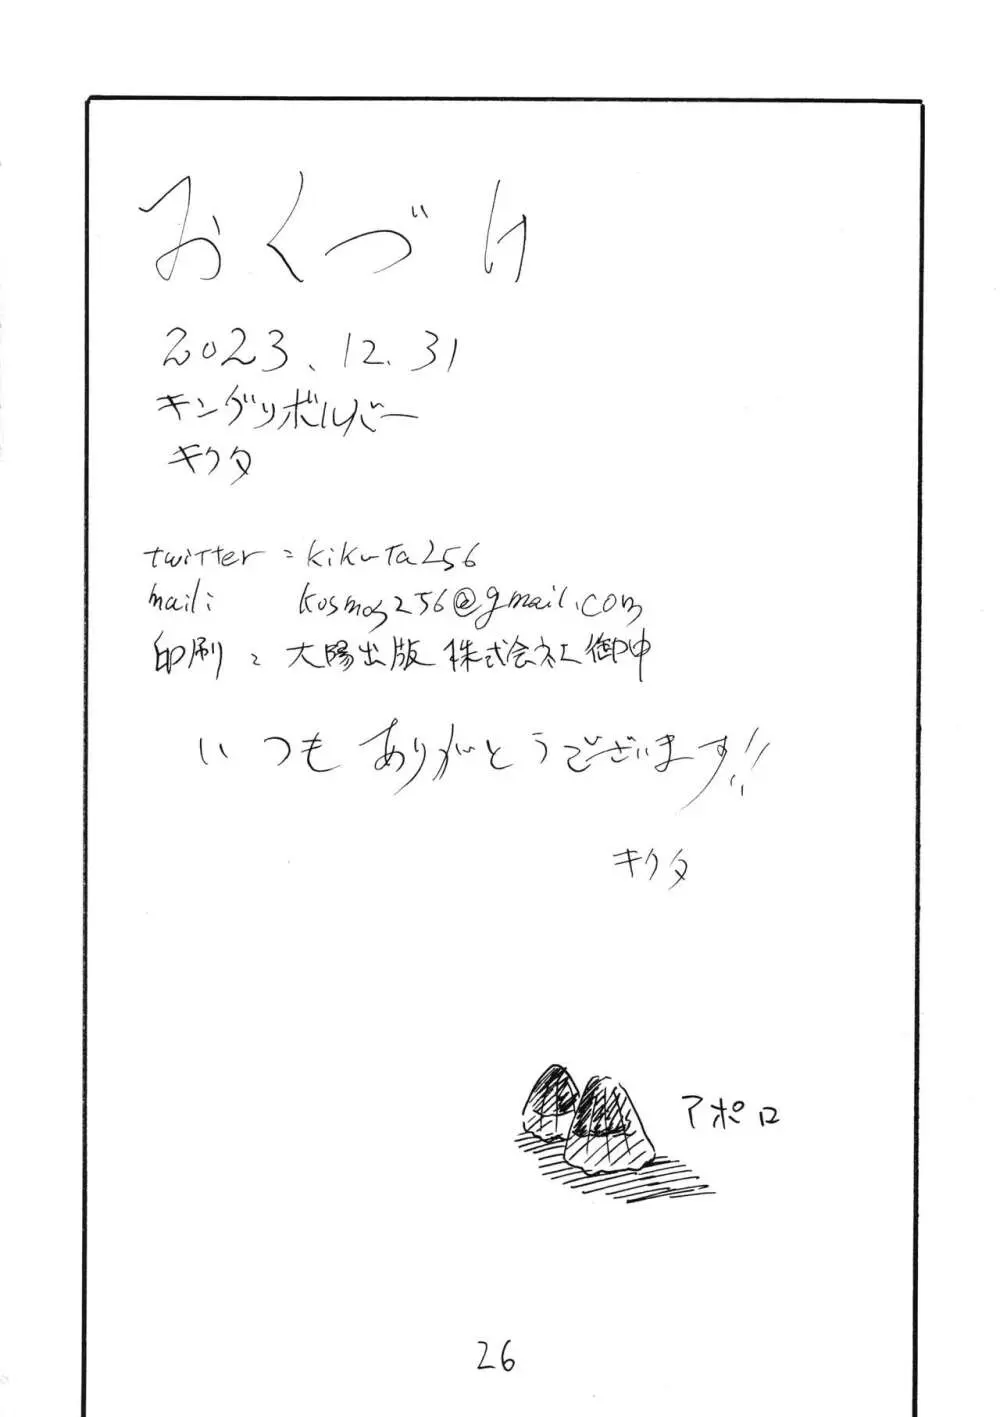 おくづけ
2023.12.31
キングリボルバー
キクタ
twitter = kikuta256
mail: kosmos256@gmail.com
印刷 : 大陽出版 株式会社 御中
いつもありがとうございます!!
キクタ
アポロ
26